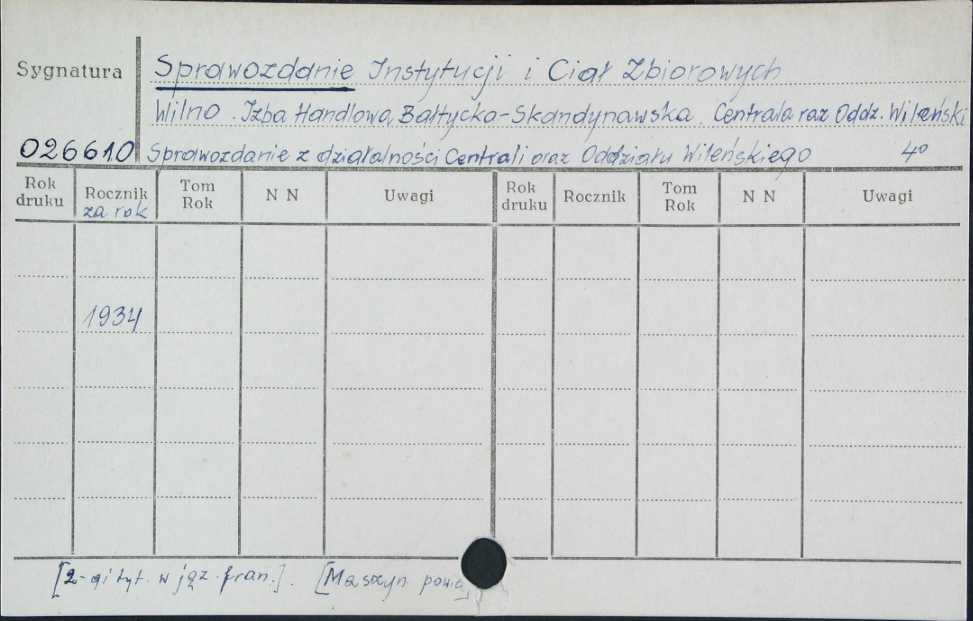 Sygnatura
Sprawozdanie Instytucji i Ciał Zbiorowych
Wilno. Izba Handlowa Bałtycko-Skandynawska. Centrala raz Oddz. Wileński
026610 Sprawozdanie z działalności Centrali oraz Oddziału Wileńskiego 4°
Rok druku Rocznik za rok Tom Rok N N Uwagi Rok druku Rocznik Tom Rok N N Uwagi
1934
[2-gi tyt. w jęz. fran.]. [Maszyn.